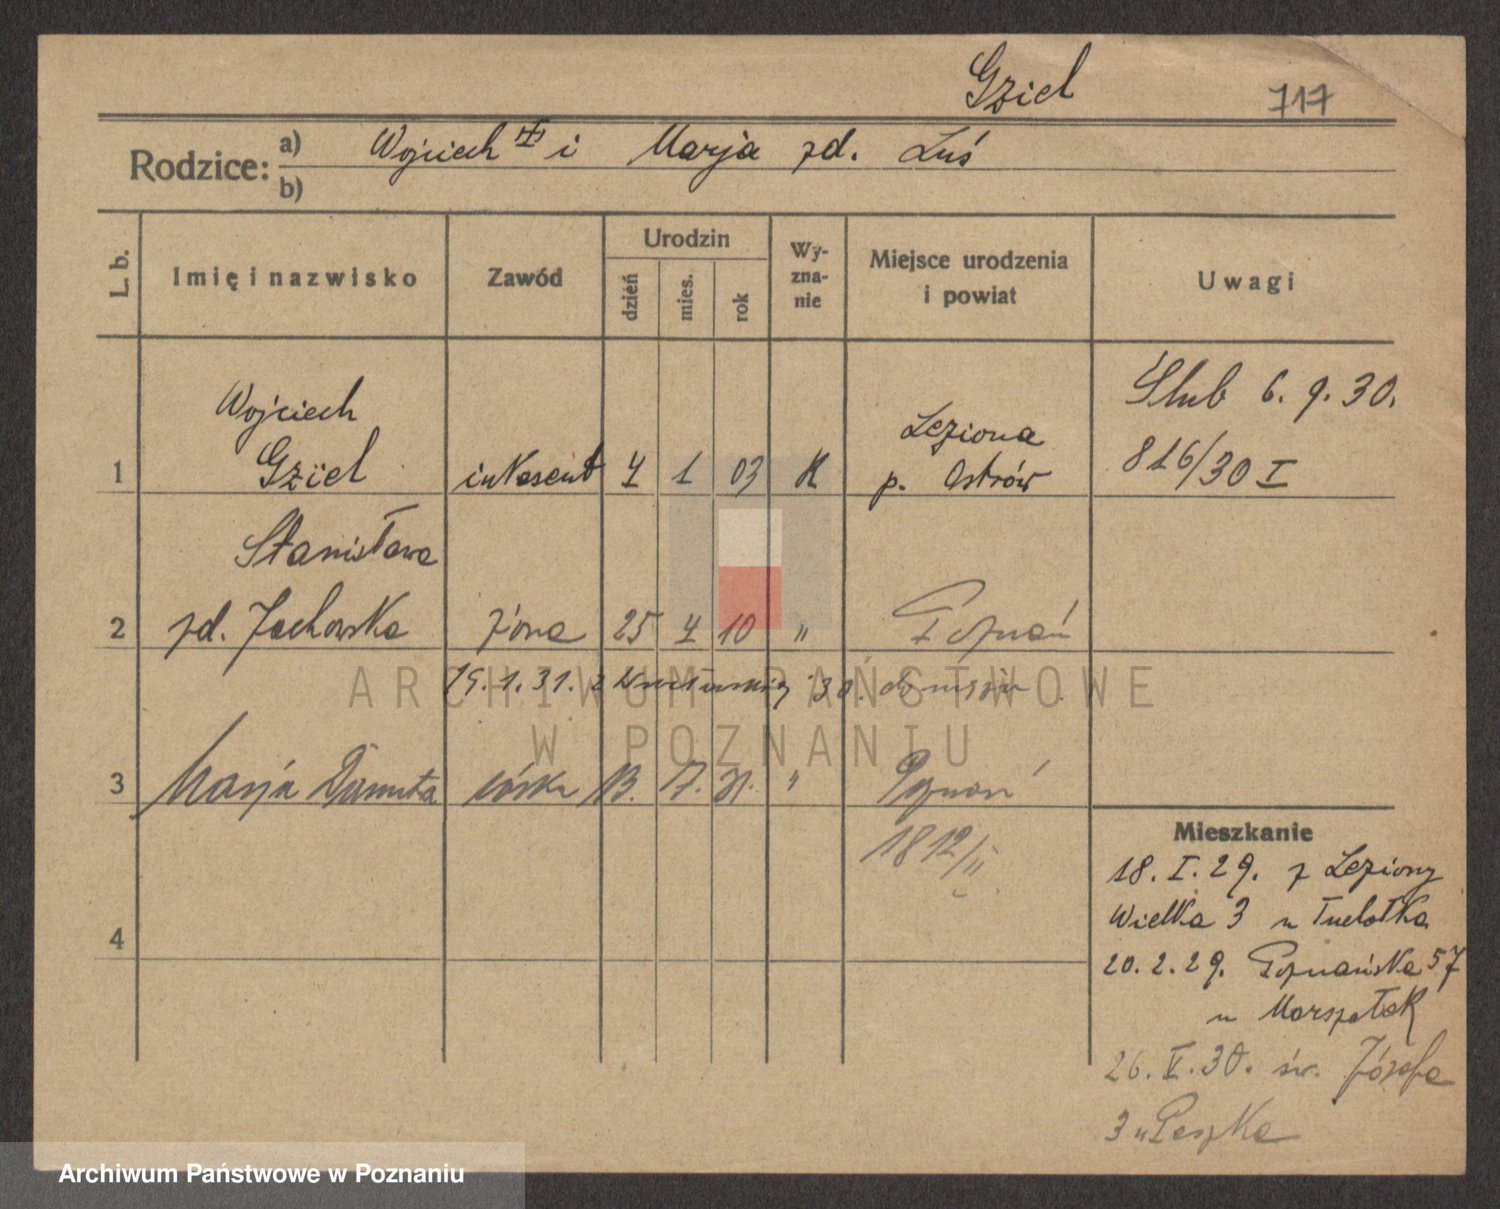 Gziel 717
Rodzice: a) Wojciech i Marja zd. Luś
b)
L. b. Imię i nazwisko Zawód Urodzin dzień mies. rok Wy-zna-nie Miejsce urodzenia i powiat Uwagi
Ślub 6. 9. 30.
816/30 I
Wojciech
1 Gziel inkasent 4 1 03 K Leziona
p. Ostrów
Stanisława
2 zd. Jachowska żona 25 4 10 " Poznań
15. 1. 31. 30.
ARCHIWUM PAŃSTWOWE
W POZNANIU
3 Marja Danuta córka 13. 7. 31. " Poznań
1812/II
4
Mieszkanie
18. I. 29. z Leziony
Wielka 3 u
20. 2. 29. Poznańska 57
u Marszałek
26. V. 30. św. Józefa
3 u Peszke
Archiwum Państwowe w Poznaniu